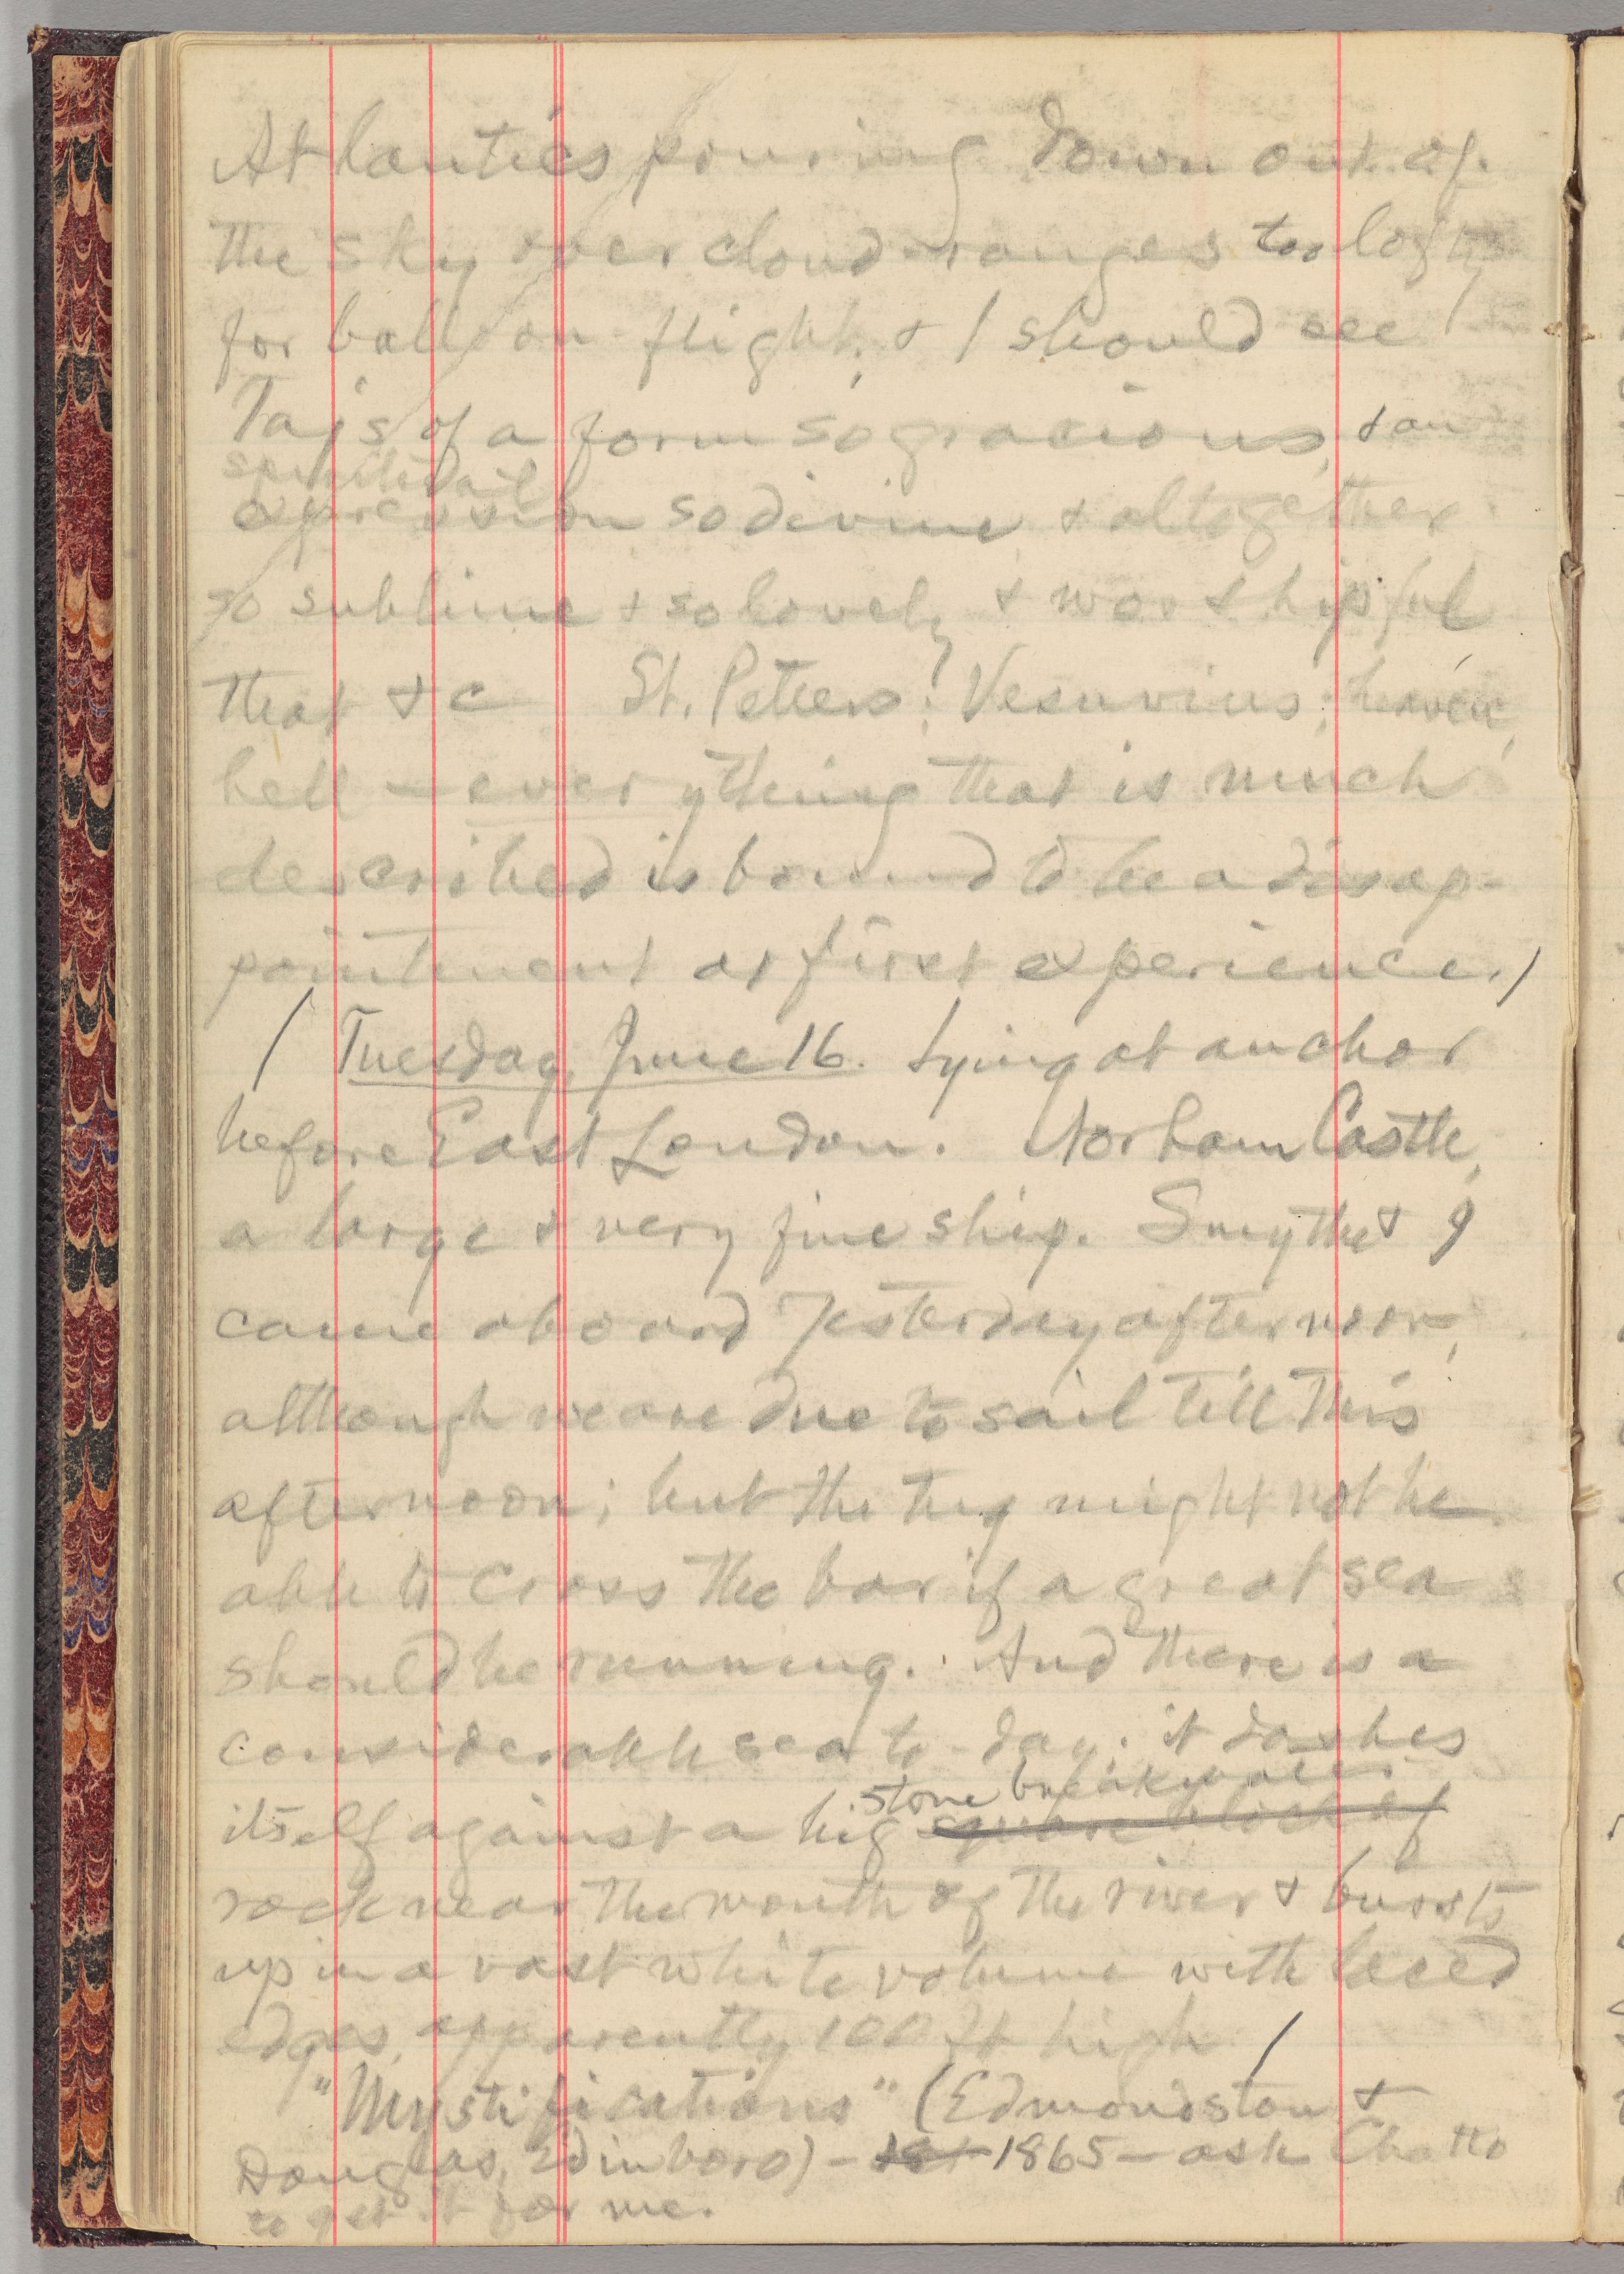 Atlantics pouring down out of
the sky over cloud-ranges too lofty
for balloon flight; & I should see
Tajs of a form so gracious, & an
spiritual
expression so divine & altogether
so sublime & so lovely & worshipful
that &c St. Peters; Vesuvius; heaven,
hell — everything that is much
described is bound to be a disap-
pointment at first experience. /
/ Tuesday, June 16. Lying at anchor
before East London. Norham Castle,
a large & very fine ship. Smythe & I
came aboard yesterday afternoon,
although we are due to sail till this
afternoon; but the tug might not be
able to cross the bar if a great sea
should be running. And there is a
considerable sea to-day; it dashes
stone breakwater
itself against a big square block of
rock near the mouth of the river & bursts
up in a vast white volume with laced
edges, apparently 100 ft high /
"Mystifications" (Edmondston &
Douglas, Edinboro) — 1865 — ask Chatto
to get it for me.